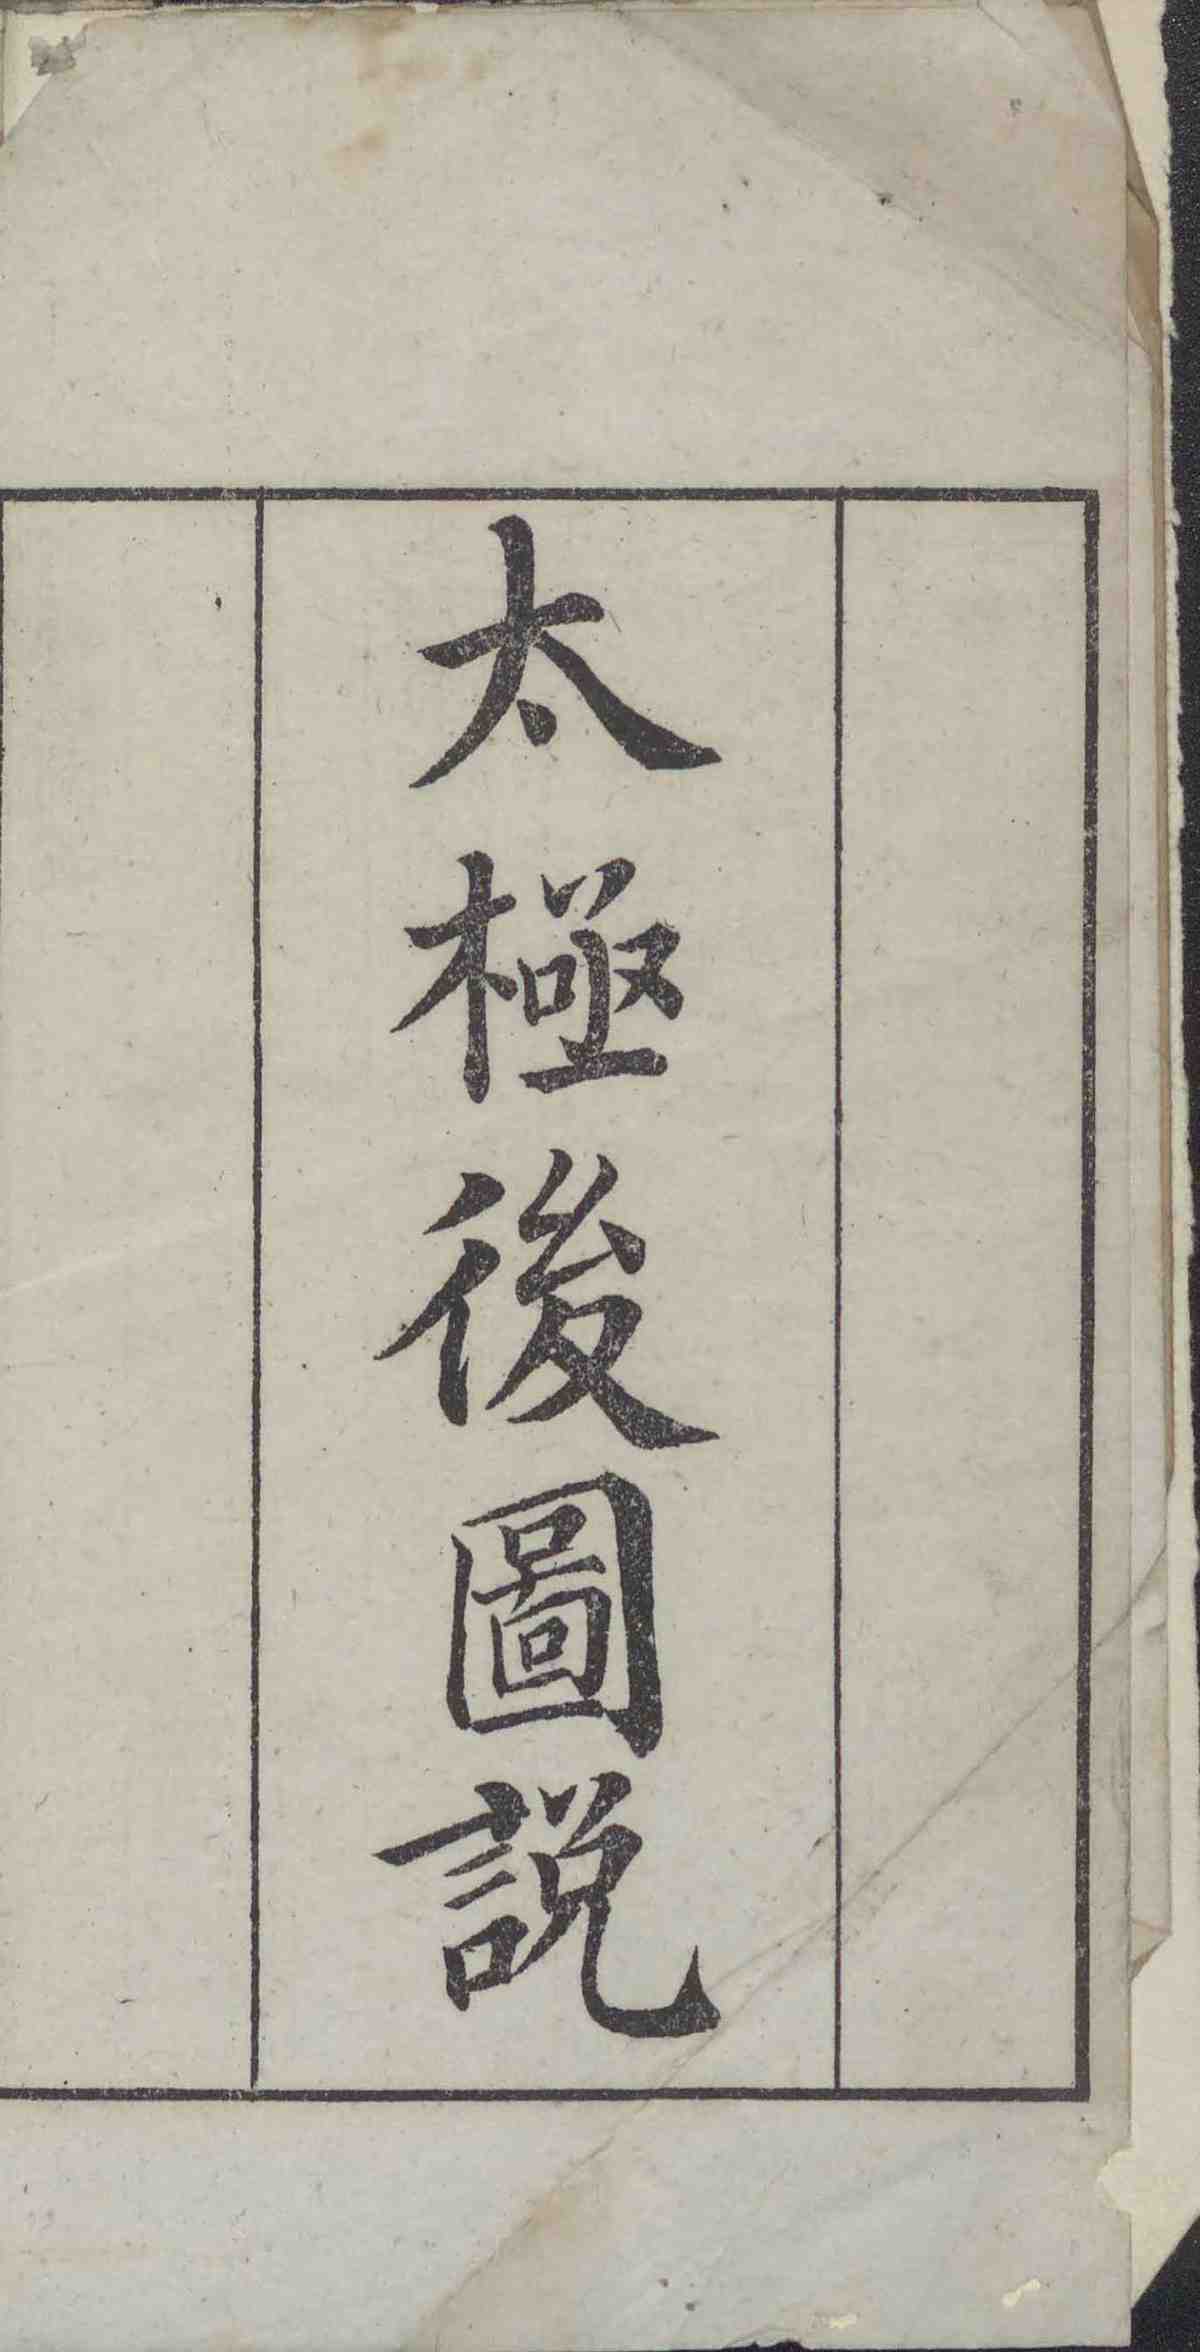 太極後圖説